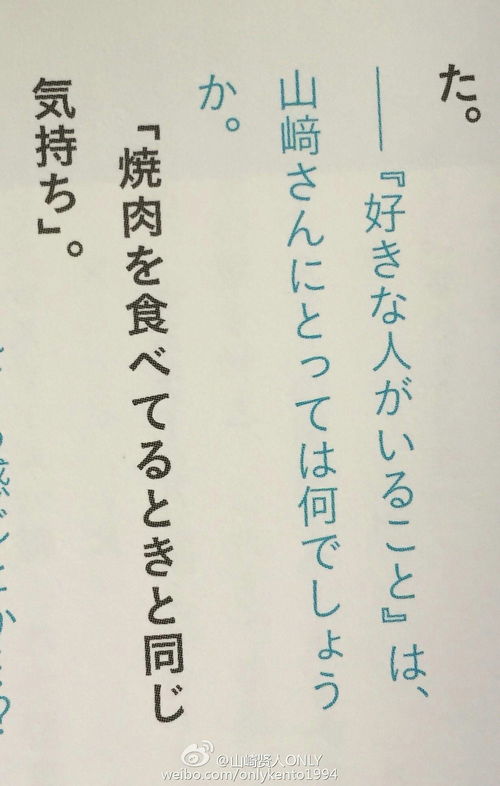 た。
――『好きな人がいること』は、
山﨑さんにとっては何でしょう
か。
「焼肉を食べてるときと同じ
気持ち」。
@山崎贤人ONLY
weibo.com/onlykento1994